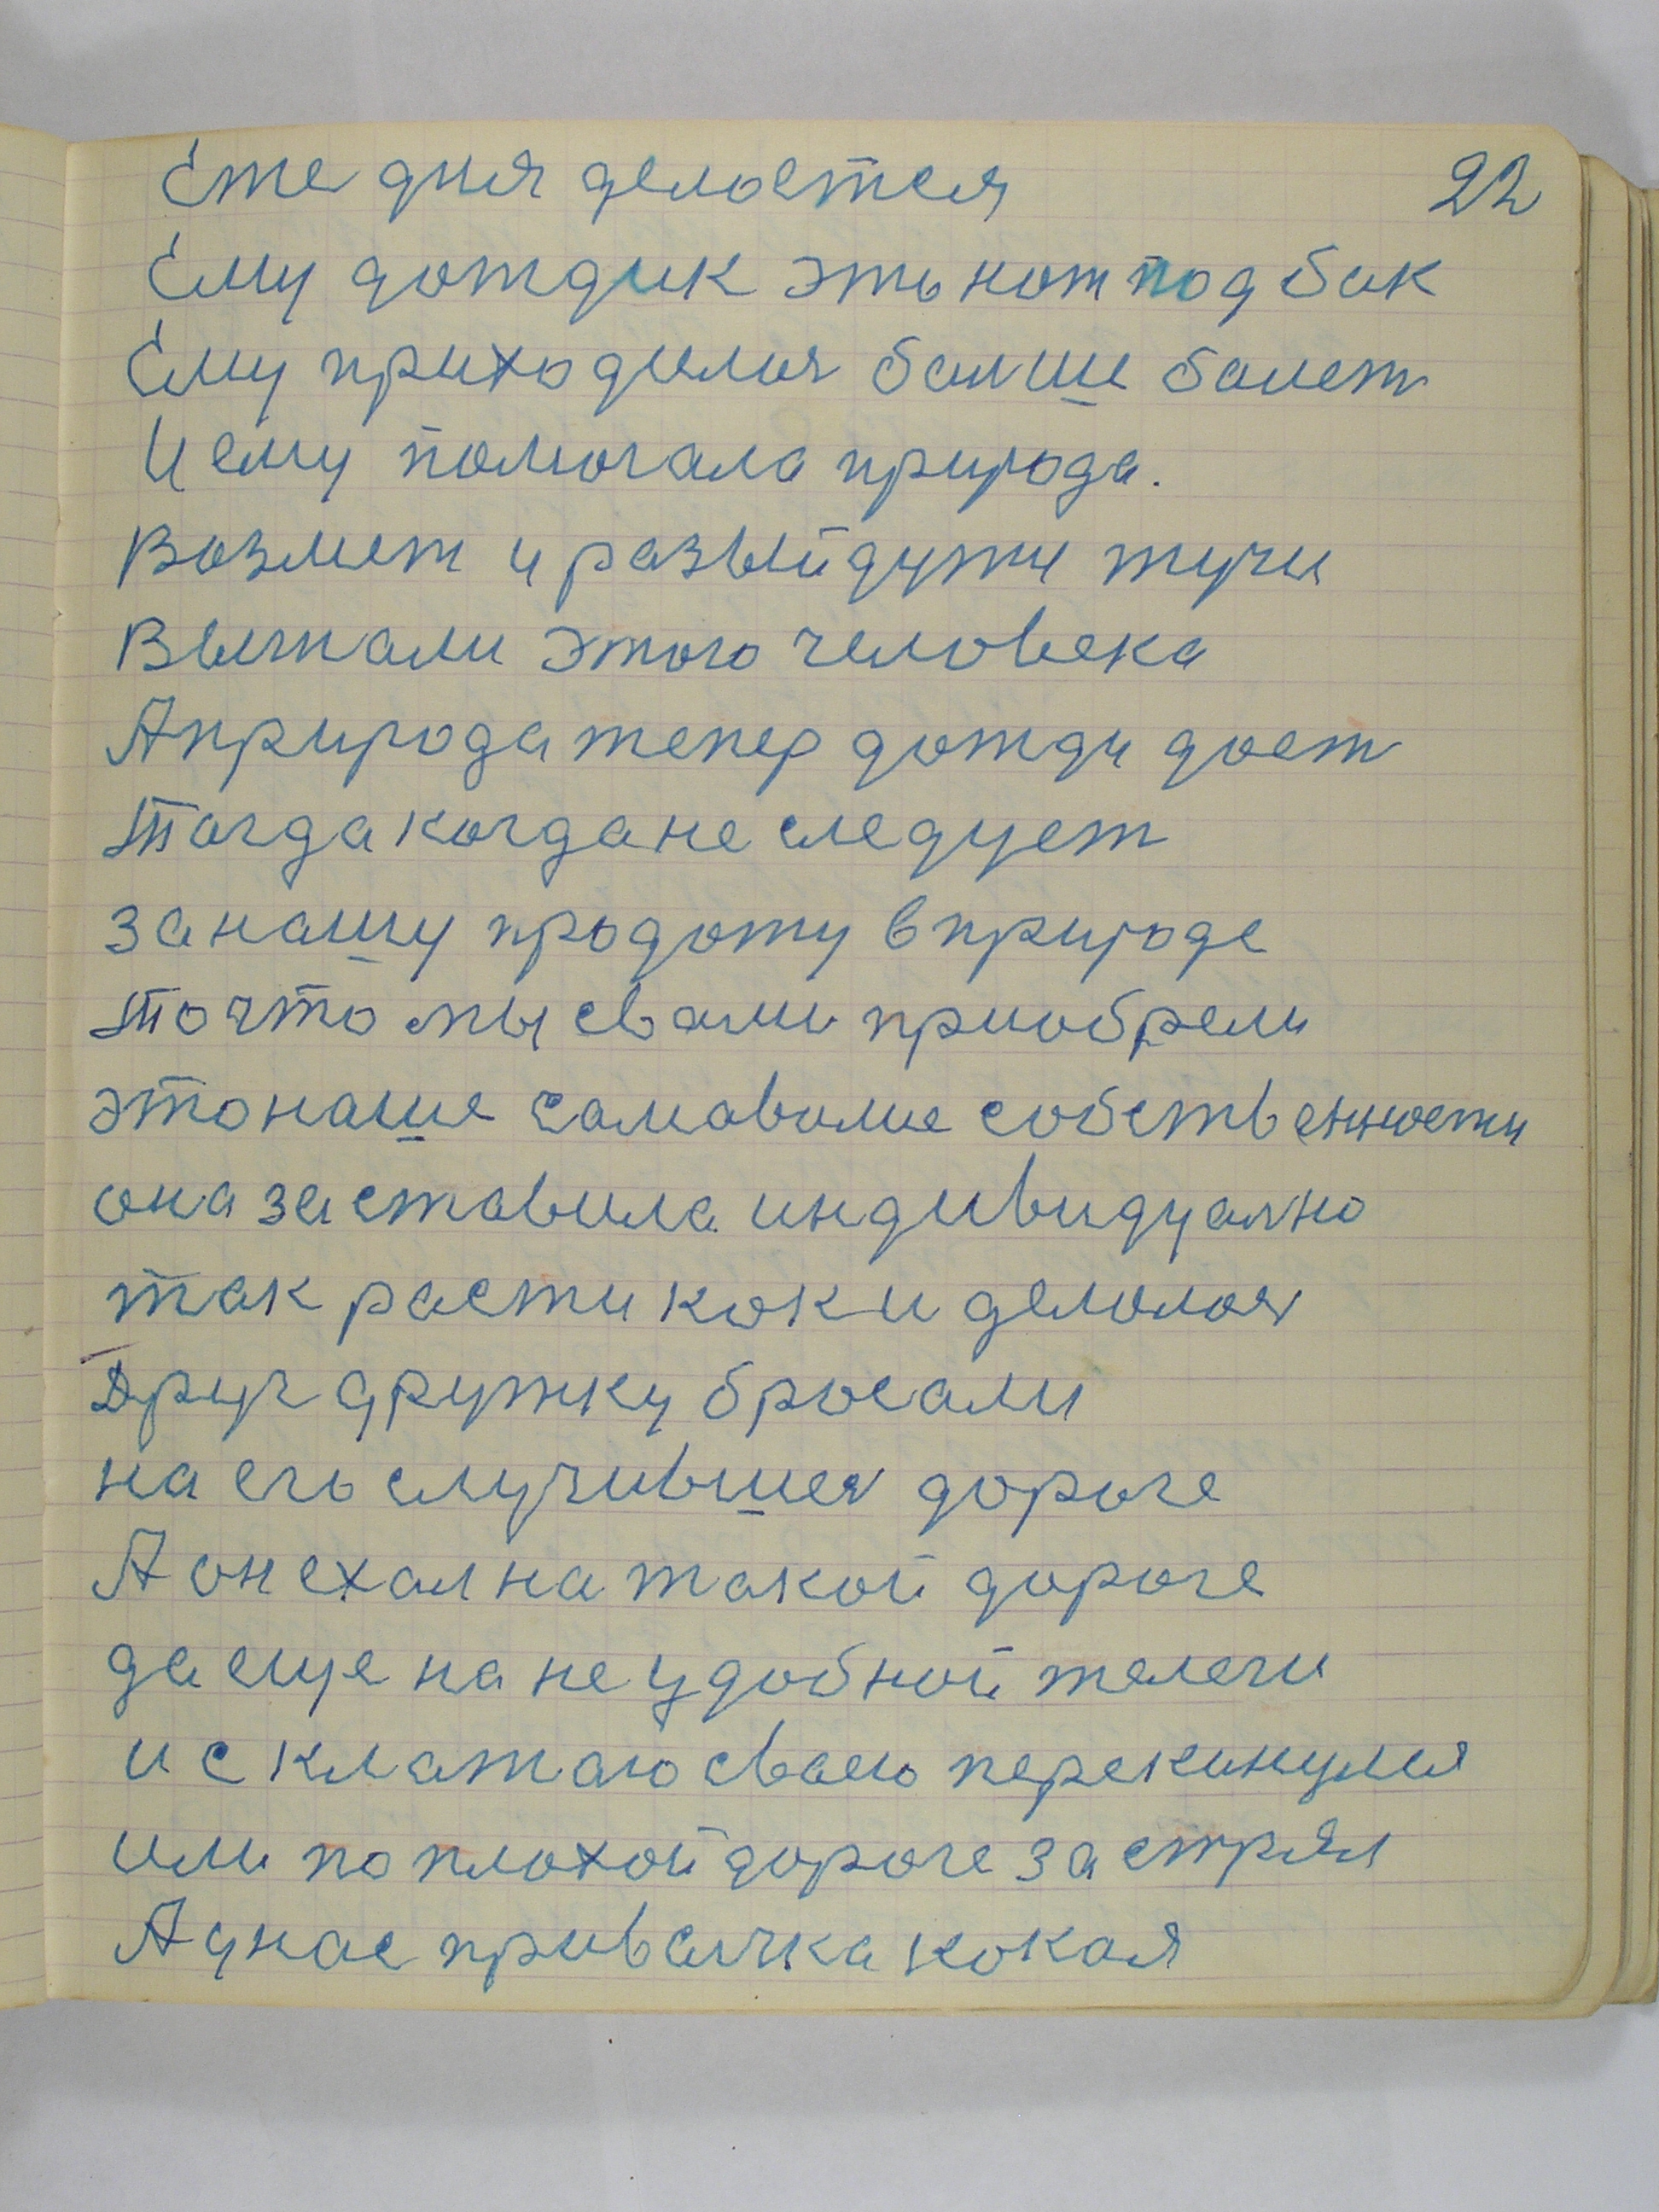 22
Еже дня делоется
Ему дождик эть нож под бак
Ему приходилоя балше балет
И ему помогала природа.
Возмет и разыйдути тучи
Выгнали этого человека
А природа тепер дожди доет
Тогда когда не следует
за нашу продожу в природе
То что мы свами приобрели
это наше самаволие собственности
она заставила индивидуално
так расти кок и делолоя
Друг дружку бросали
на его случившея дороге
А он ехал на такой дороге
да еще на не удобной телеги
и с клажаю сваею перекинулия
или по плохой дороге застрял
А унас привычка кокая